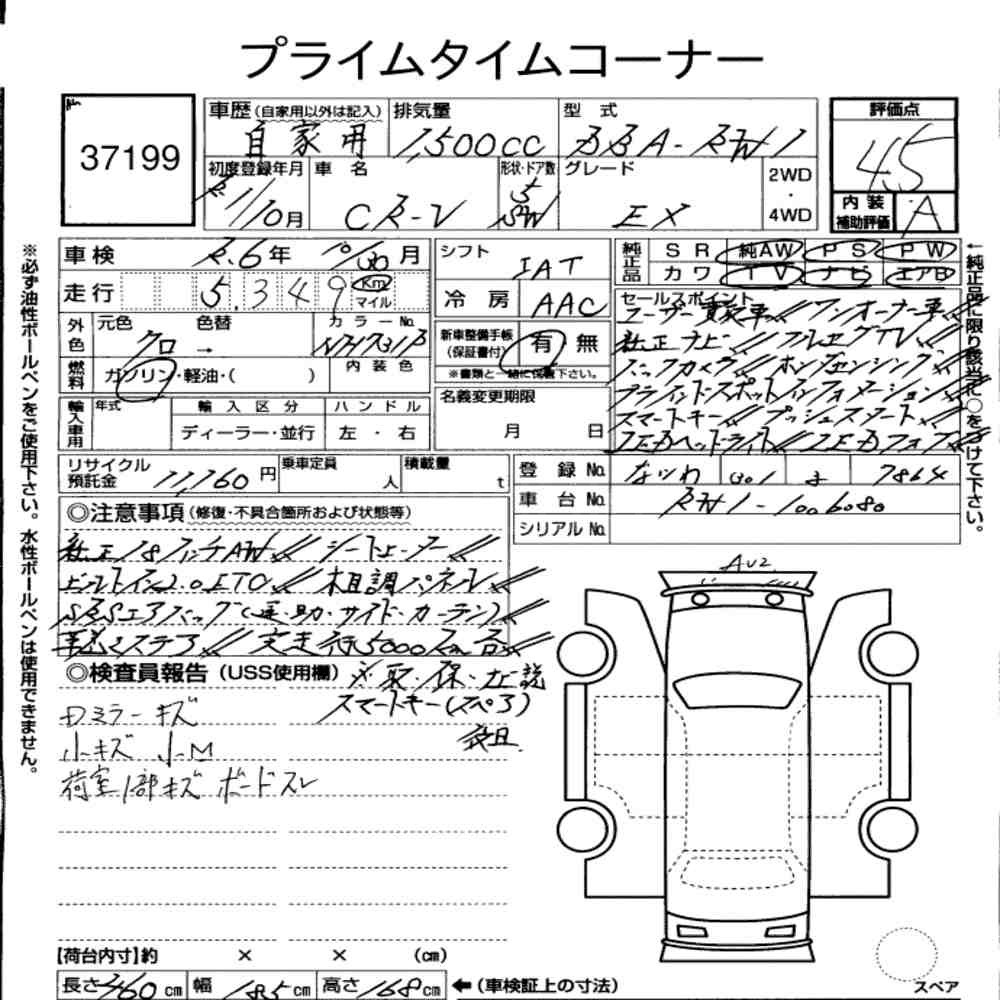 プライムタイムコーナー
37199
車歴（自家用以外は記入） 自家用
排気量 1,500CC
型式 BBA-RW1
評価点 4.5
初度登録年月 R1/10月
車名 CR-V
形状・ドア数 5 SW
グレード EX
2WD・4WD
内装補助評価 A
車検 R.6年 10/30月
シフト IAT
純正品 SR 純AW PS PW
カワ TV ナビ エアB
走行 5,349 Km マイル
冷房 AAC
セールスポイント
ユーザー買取車 ワンオーナー車
純正ナビ フルセグTV
バックカメラ ホンダセンシング
ブラインドスポットインフォメーション
スマートキー プッシュスタート
LEDヘッドライト LEDフォグ
外色 元色 クロ → 色替
カラーNo. NH731P
新車整備手帳（保証書付） 有 無
※書類と一緒に保管下さい。
燃料 ガソリン・軽油・（ ）
内装色
名義変更期限 月 日
輸入車用 年式 輸入区分 ハンドル
ディーラー・並行 左・右
リサイクル預託金 11,760円
乗車定員 人
積載量 t
登録No. なにわ 301 7864
車台No. RW1-1006080
シリアルNo.
◎注意事項（修復・不具合箇所および状態等）
純正18インチAW シートヒーター
ビルトイン2.0ETC 木目調パネル
SRSエアバッグ（運・助・サイド・カーテン）
実走行5000Km台
◎検査員報告（USS使用欄） ※取・保・ナビ説
スマートキー（スペア）
後日
Dミラーキズ
小キズ 小M
荷室1部キズ ボードスレ
AU2
【荷台内寸】約 × × （cm）
長さ460cm 幅185cm 高さ168cm ←（車検証上の寸法）
スペア
※必ず油性ボールペンをご使用下さい。水性ボールペンは使用できません。
←純正品に限り該当に○をつけて下さい。